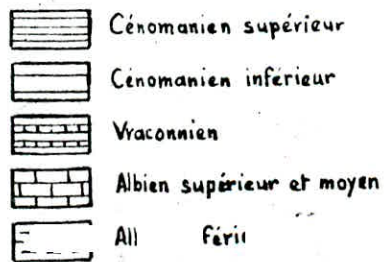 Cénomanien supérieur
Cénomanien inférieur
Vraconnien
Albien supérieur et moyen